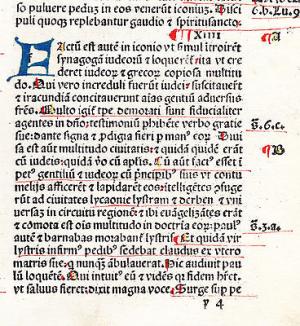 so pulvere pedũ in eos venerũt iconiũ. Discı
puli quoqȝ replebantur gaudio ⁊ spiritusancto.
6.b.Zu.9
XIIII
A
Factũ est autẽ in iconio vt simul ĩtroirẽt
synagogã iudeorũ ⁊ loquerẽt̃ ita vt cre
deret iudeorũ ⁊ grecorũ copiosa multitu
do. Qui vero increduli fuerũt iudei suscitauerũt
⁊ iracundiã concitauerunt aĩas gentiũ aduersus
frẽs. Multo igit̃ tpe demorati sunt fiducialiter
agentes in dño testimoniũ phibẽte verbo gratie
sue: dante signa ⁊ pdigia fieri p manꝰ eorũ. Di
B.6.c.
uisa est aũt multitudo ciuitatis: ⁊ quidã quidẽ erãt
cũ iudeis: quidã vo cũ aplis.
B
Cũ aũt factꝰ esset ĩ
petꝰ gentiliũ ⁊ iudeorũ cũ prĩcipibꝰ suis vt contu
melijs afficerẽt ⁊ lapidarẽt eos: ĩtelligẽtes ofuge
rũt ad ciuitates lycaonie lystram ⁊ derben ⁊ vni
uersaȝ in circuitu regionẽ: ⁊ ibi euãgelizãtes erãt
⁊ cõmota est ois multitudo in doctrina eorũ: paul
autẽ ⁊ barnabas morabant̃ lystris.
B.3.a.
Et quidã vir
lystris infirmꝰ pedibꝰ sedebat claudus ex vtero
matris sue: qui nunqȝ̃ ãbulauerat. Hic audiuit pau
lũ loquẽtẽ. Qui intuitꝰ eũ ⁊ vidẽs qȝ fidem hr̃et
vt saluus fieret: dixit magna voce. Surge sup pe
P 4